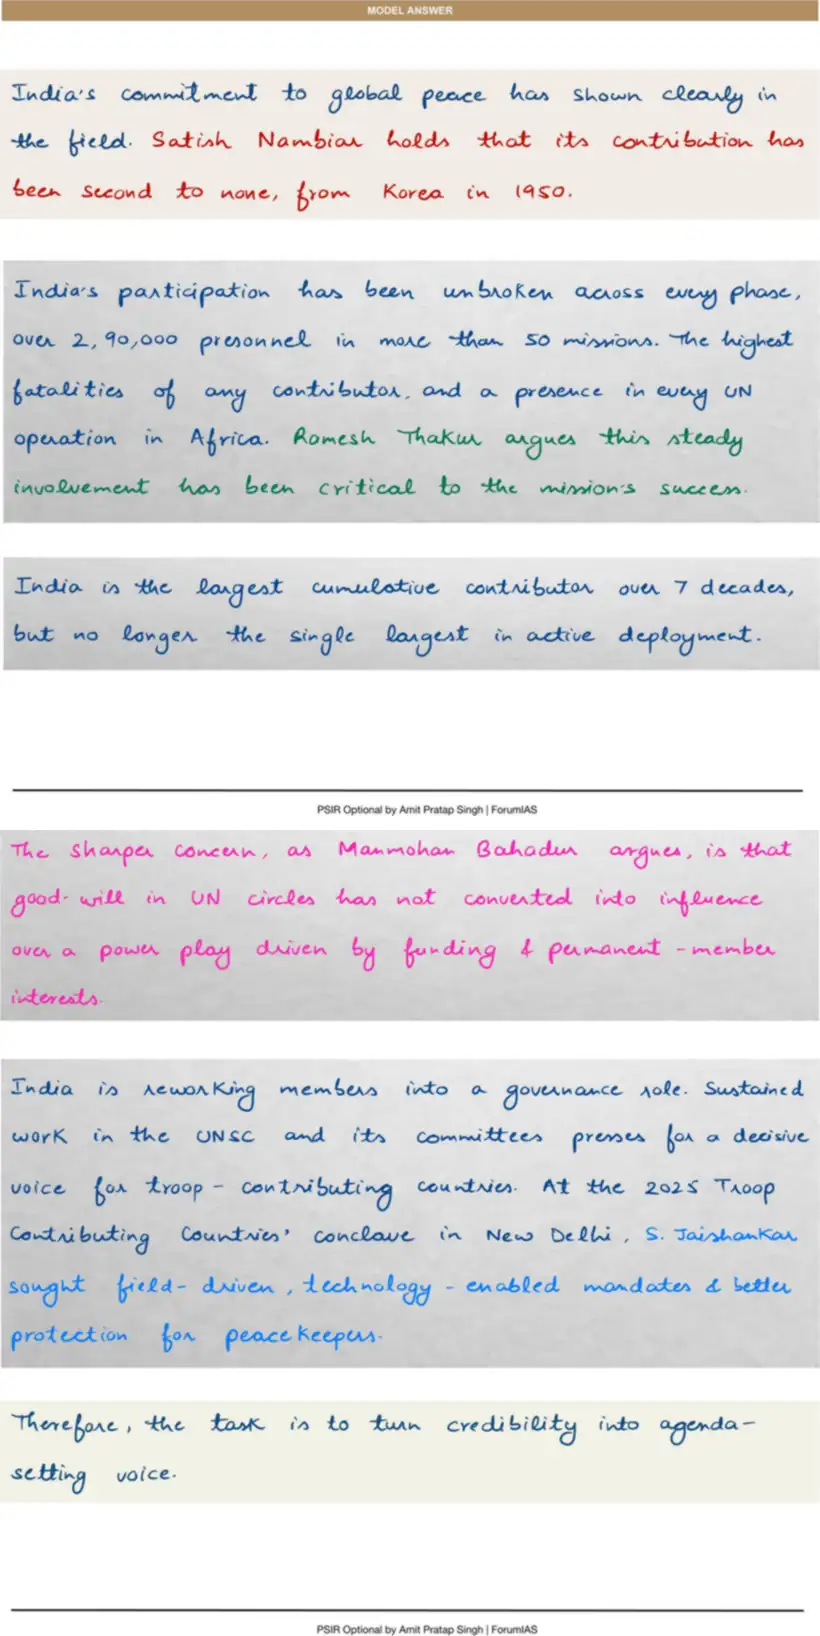 MODEL ANSWER
India's commitment to global peace has shown clearly in
the field. Satish Nambiar holds that its contribution has
been second to none, from Korea in 1950.
India's participation has been unbroken across every phase,
over 2,90,000 presonnel in more than 50 missions. The highest
fatalities of any contributor, and a presence in every UN
operation in Africa. Ramesh Thakur argues this steady
involvement has been critical to the mission's success.
India is the largest cumulative contributor over 7 decades,
but no longer the single largest in active deployment.
PSIR Optional by Amit Pratap Singh | ForumIAS
The sharper concern, as Manmohan Bahadur argues, is that
good-will in UN circles has not converted into influence
over a power play driven by funding & permanent-member
interests.
India is reworking members into a governance role. Sustained
work in the UNSC and its committees presses for a decisive
voice for troop-contributing countries. At the 2025 Troop
Contributing Countries' conclave in New Delhi, S. Jaishankar
sought field-driven, technology-enabled mandates & better
protection for peacekeepers.
Therefore, the task is to turn credibility into agenda-
setting voice.
PSIR Optional by Amit Pratap Singh | ForumIAS